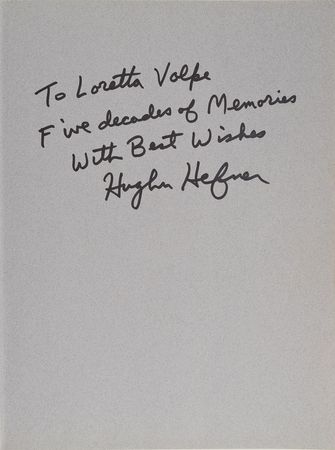 To Loretta Volpe
Five decades of Memories
With Best Wishes
Hugh Hefner